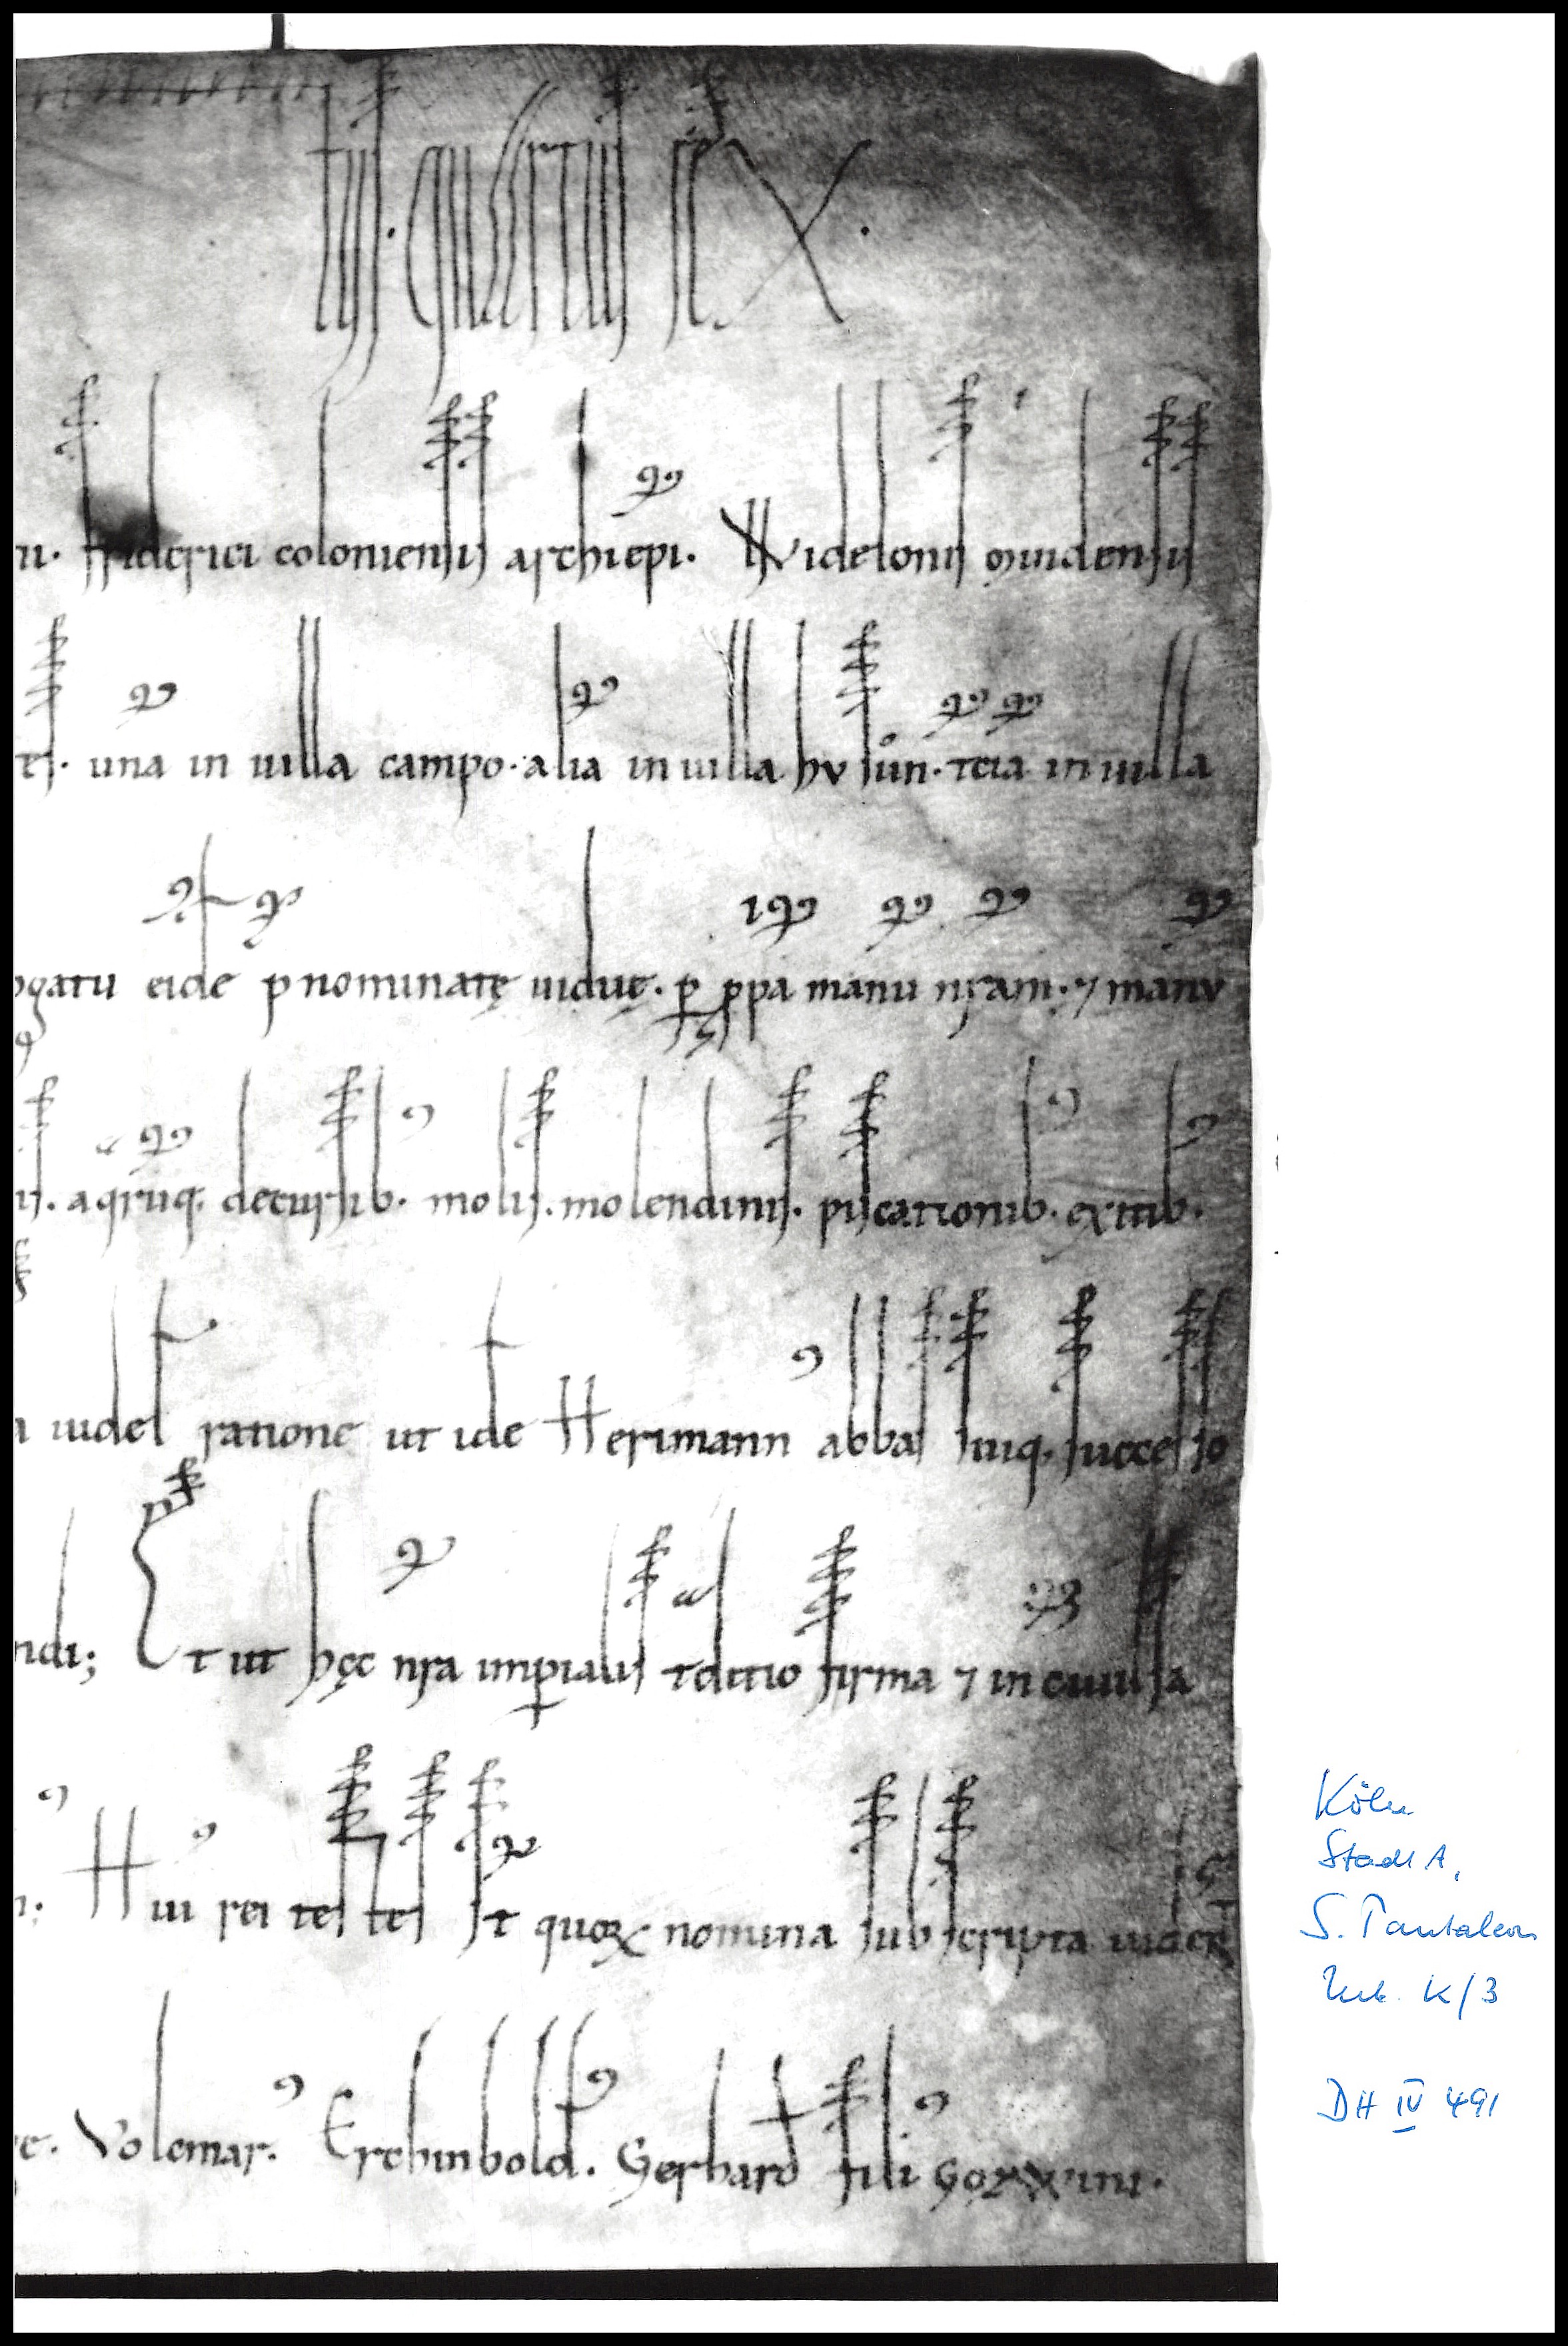 tius. quartus rex.
u. friderici coloniensis archiepi. Widelonis mindensis
una in uilla campo. alia in uilla hv sun. tcia in uilla
ogatu eide p nominatę uiduę. p ppa manu nram. ⁊ manv
is. aqruq. decursib. molis. molendinis. piscationib. exitib.
a uidel ratione ut ide Herimann abbas suiq. successo
ndi; Et ut hęc nra impialis tditio firma ⁊ in cuulsa
Hui rei testes st quoꝝ nomina subscripta uidenꞇ
Volcmar. Erchinbold. Gerhard filii Gozwini.
Köln
Stadt A.
S. Pantaleon
Urk. K/3
DH IV 491